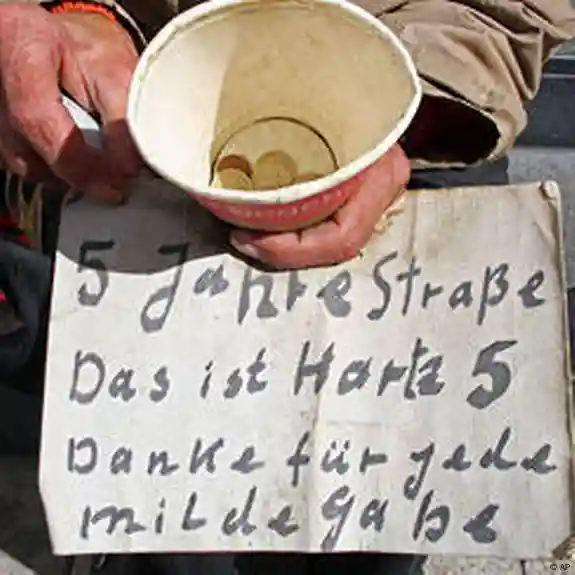 5 Jahre Straße
Das ist Hartz 5
Danke für jede
milde Gabe
© AP